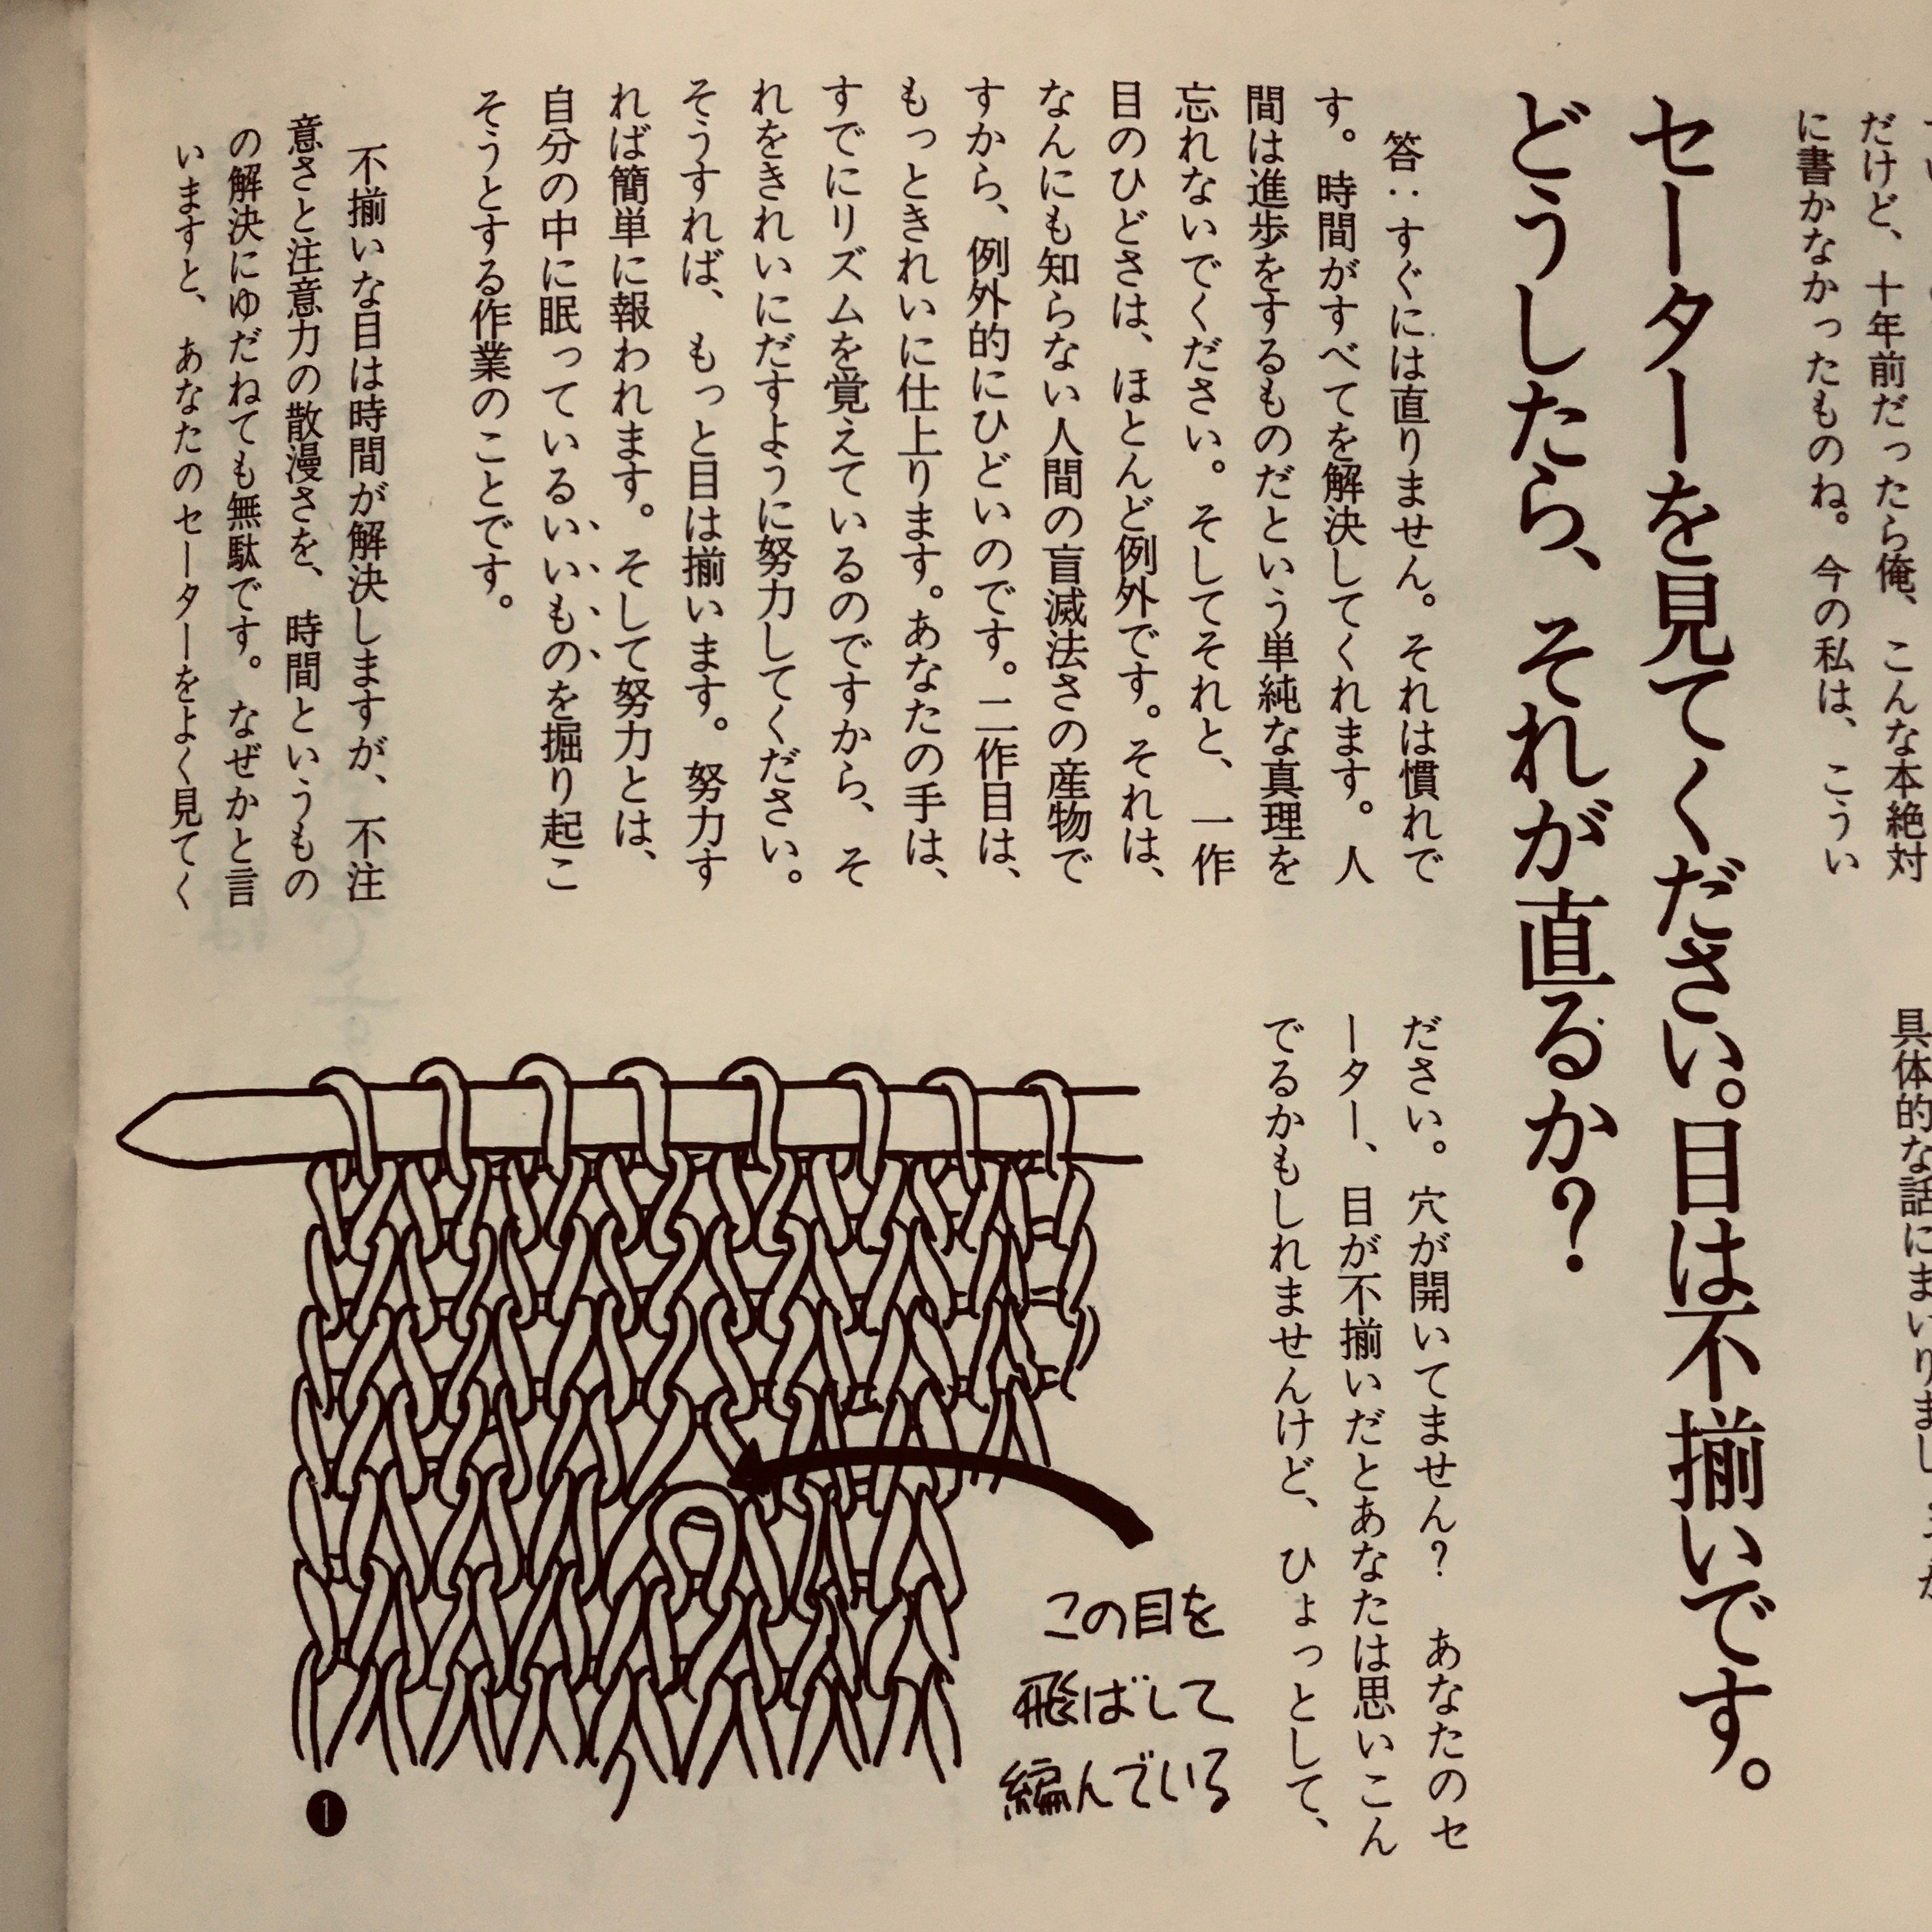 だけど、十年前だったら俺、こんな本絶対
に書かなかったものね。今の私は、こうい
具体的な話にまいりまし
セーターを見てください。目は不揃いです。
どうしたら、それが直るか？
答：すぐには直りません。それは慣れで
す。時間がすべてを解決してくれます。人
間は進歩をするものだという単純な真理を
忘れないでください。そしてそれと、一作
目のひどさは、ほとんど例外です。それは、
なんにも知らない人間の盲滅法さの産物で
すから、例外的にひどいのです。二作目は、
もっときれいに仕上ります。あなたの手は、
すでにリズムを覚えているのですから、そ
れをきれいにだすように努力してください。
そうすれば、もっと目は揃います。努力す
れば簡単に報われます。そして努力とは、
自分の中に眠っているいいものを掘り起こ
そうとする作業のことです。
不揃いな目は時間が解決しますが、不注
意さと注意力の散漫さを、時間というもの
の解決にゆだねても無駄です。なぜかと言
いますと、あなたのセーターをよく見てく
ださい。穴が開いてません？　あなたのセ
ーター、目が不揃いだとあなたは思いこん
でるかもしれませんけど、ひょっとして、
この目を
飛ばして
編んでいる
1